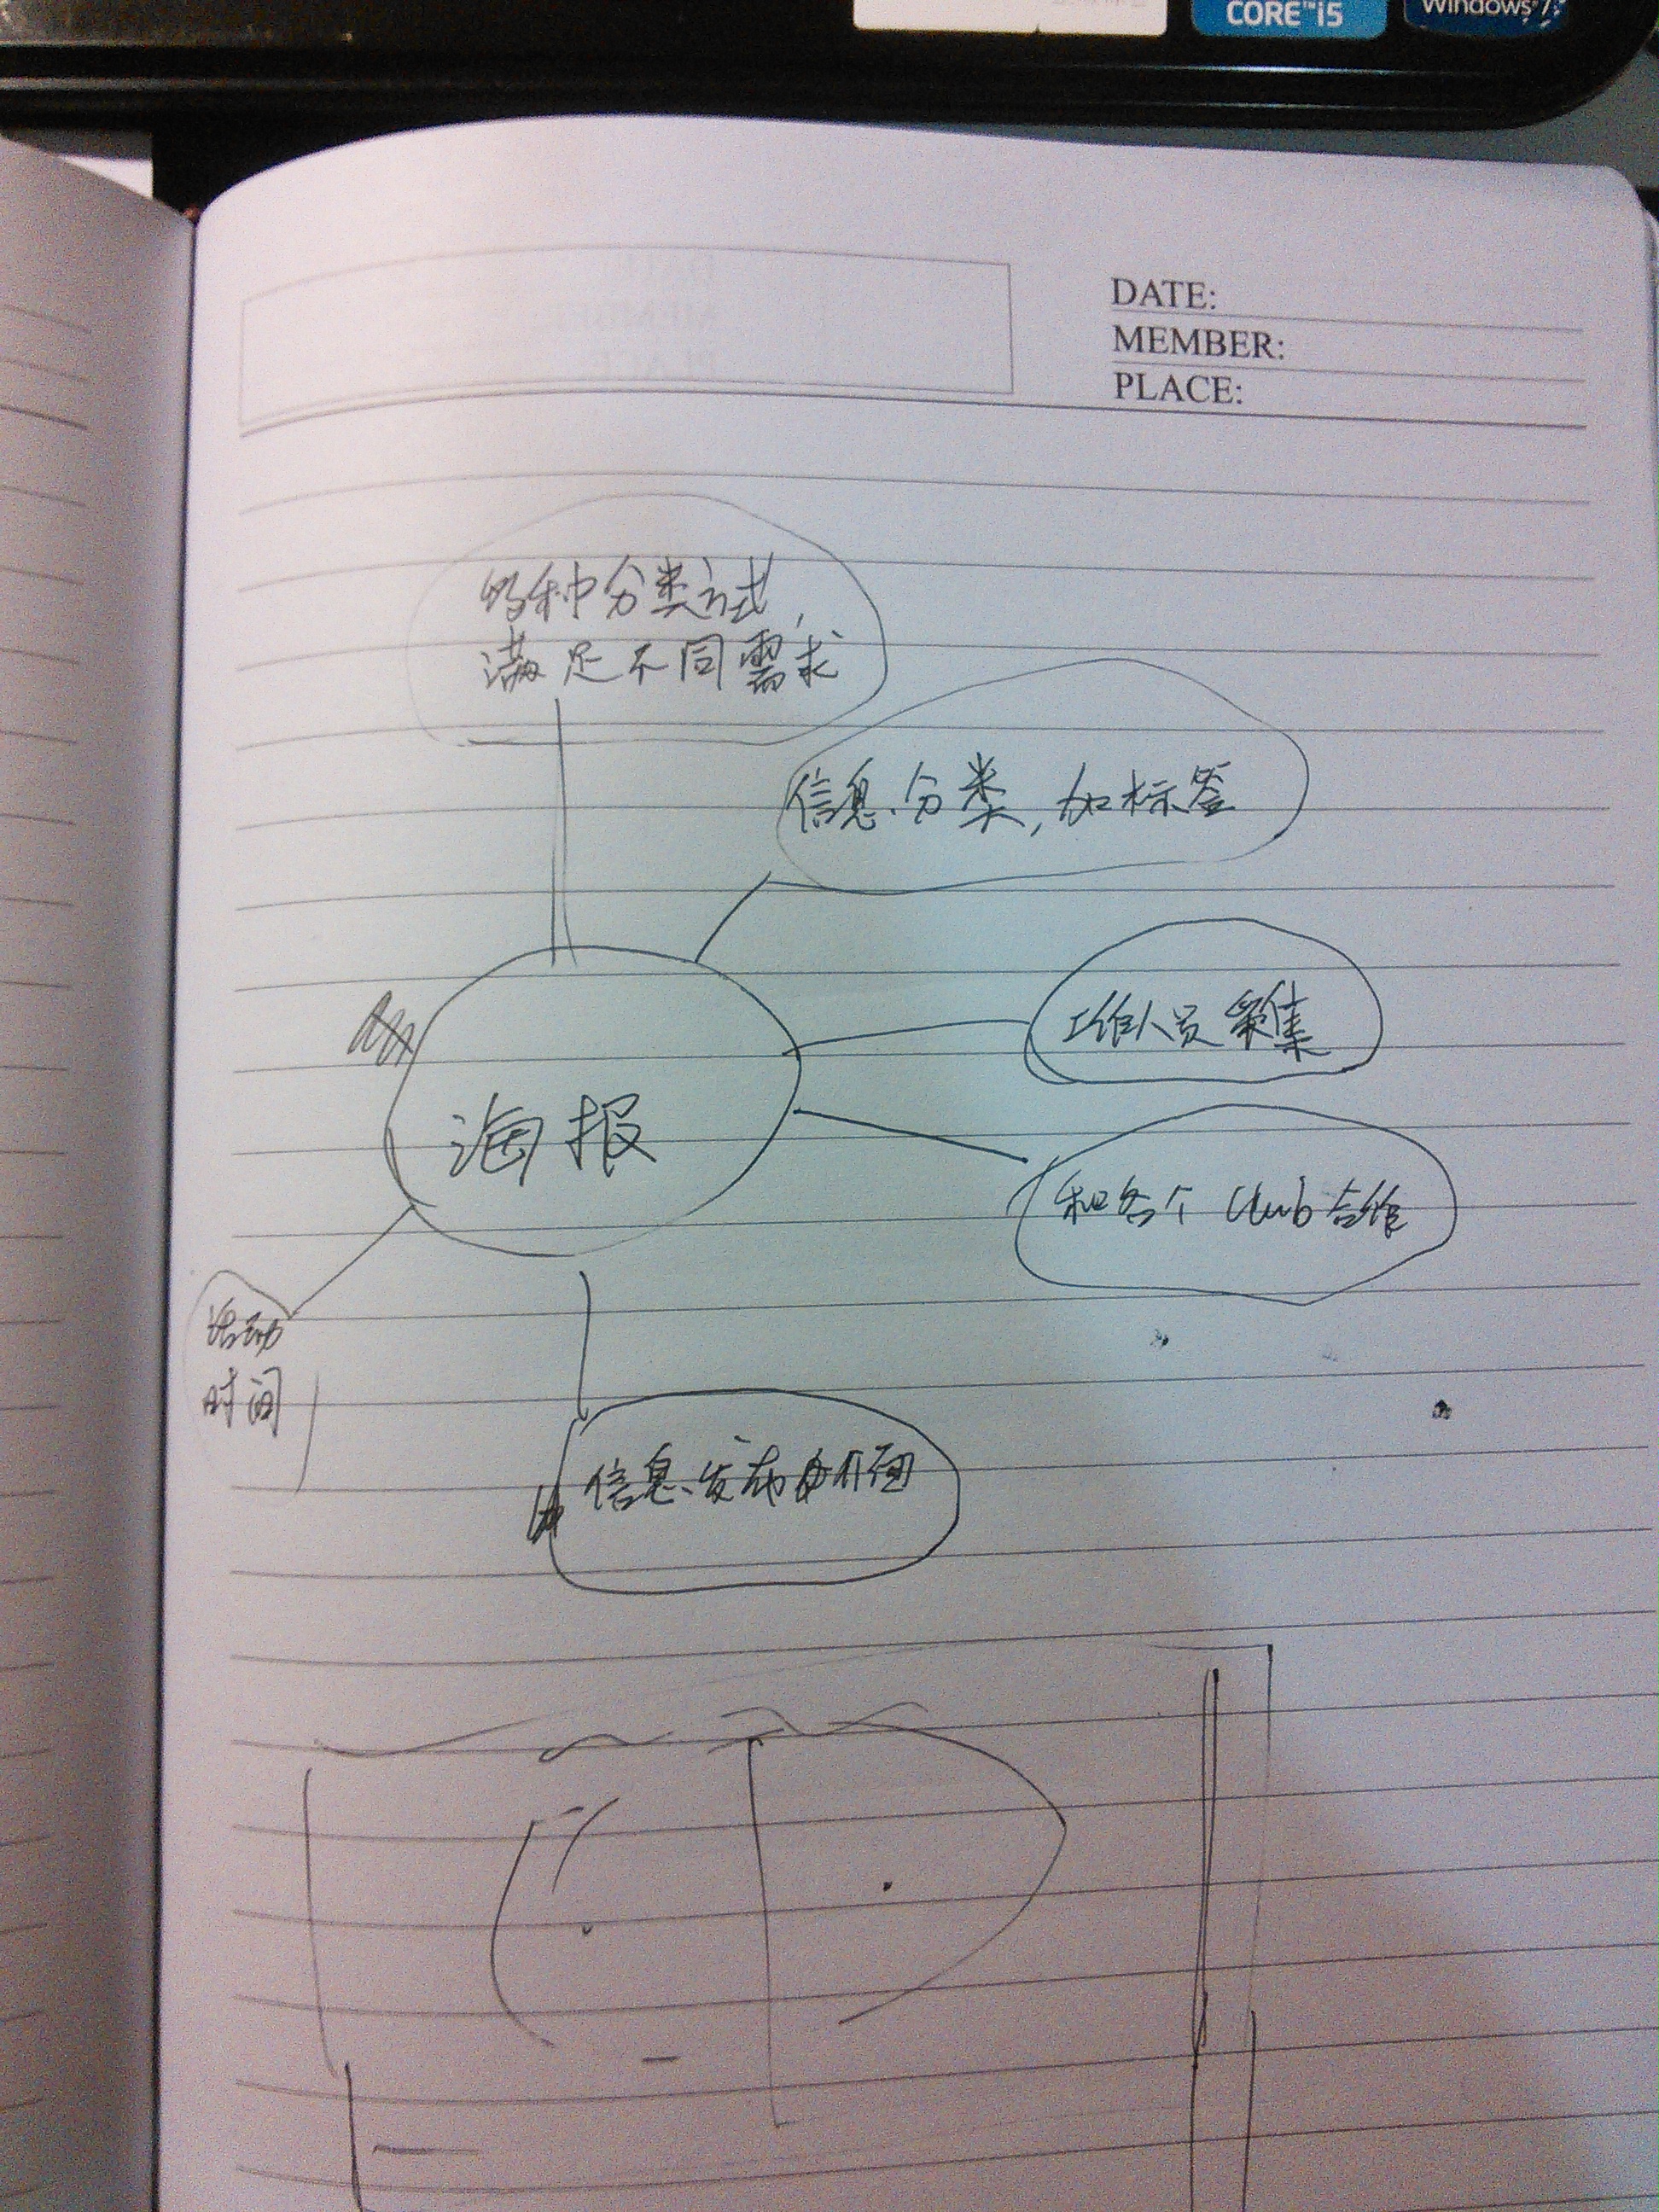 CORE™i5
Windows®7
DATE:
MEMBER:
PLACE:
多种分类方式,
满足不同需求
信息分类,加标签
工作人员采集
海报
和各个Club合作
活动
时间
信息发布
界面